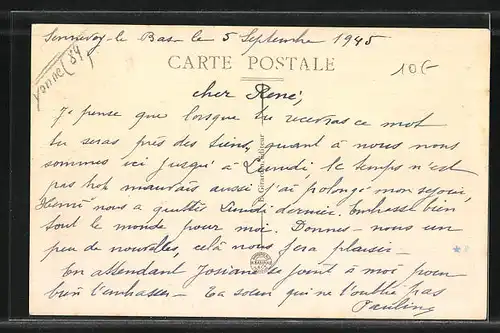 Sennevoy-le Bas le 5 Septembre 1945
CARTE POSTALE
Yonne (89)
10 F
cher René,
Je pense que lorsque tu recevras ce mot
tu seras près des tiens, quant à nous nous
sommes ici jusqu'à Lundi, le temps n'est
pas trop mauvais aussi j'ai prolongé mon séjour,
Henri nous a quittés Lundi dernier. Embrasse bien
tout le monde pour moi. Donnes-nous un
peu de nouvelles, celà nous fera plaisir.
En attendant Josiane se joint à moi pour
bien t'embrasser - Ta soeur qui ne t'oublie pas
Pauline
Girardin, éditeur